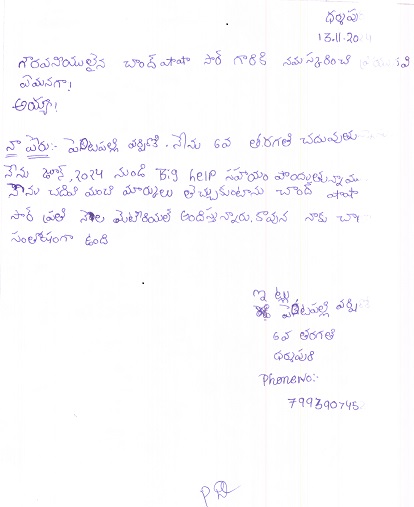 ధర్మపు
13.11.2024
గౌరవనియులైన చాంద్ పాషా సార్ గారికి నమస్కరించి
ఏమనగా!
అయ్యా!
నా పేరు:- పెదిటపల్లి వర్షిణి. నేను 6వ తరగతి చదువుతు
నేను జూన్, 2024 నుండి Big help సహయం పొందుతున్నాను
నేను చదివి మంచి మార్కులు తెచ్చుకుంటాను చాంద్ పాషా
సార్ ప్రతి నెల మెటీరియల్ అందిస్తున్నారు. కావున నాకు చా
సంతోషంగా ఉంది
ఇట్లు
పెదిటపల్లి వర్షి
6వ తరగతి
ధర్మపురి
Phoneno:-